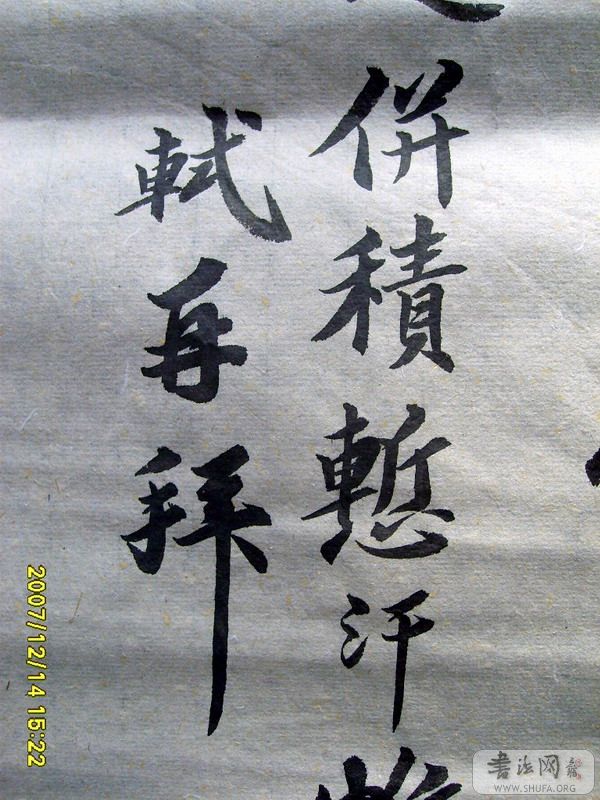 併積慙汗
軾再拜
2007/12/14 15:22
書法网
WWW.SHUFA.ORG